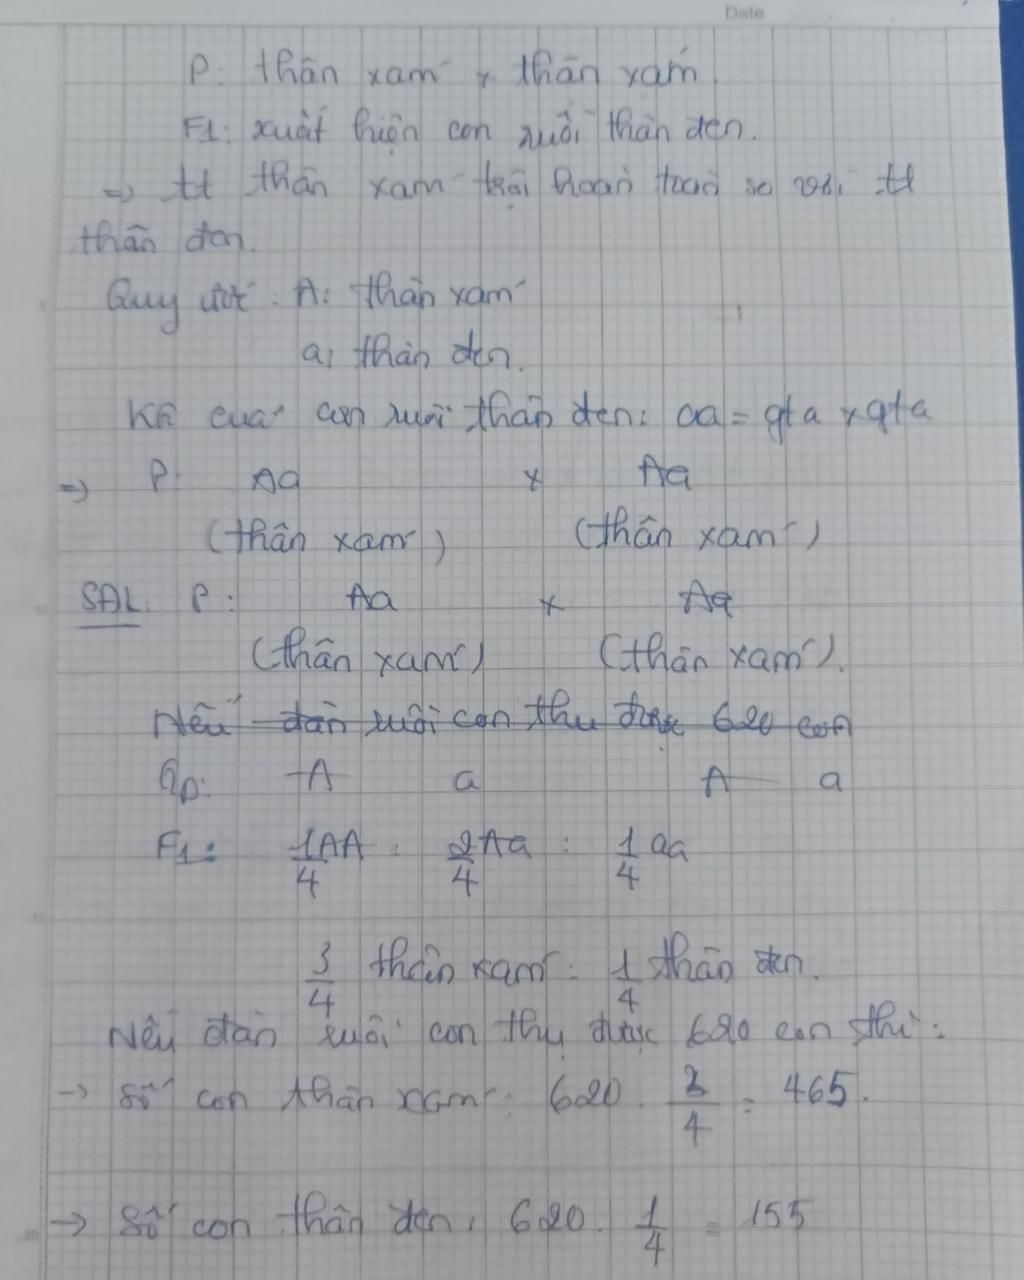 Date
P: thân xám x thân xám
F1: xuất hiện con ruồi thân đen.
=> tt thân xám trội hoàn toàn so với tt
thân đen.
Quy ước: A: thân xám
a: thân đen.
KG của con ruồi thân đen: aa = gt a x gt a
=> P: Aa x Aa
(thân xám) (thân xám)
SĐL: P: Aa x Aa
(thân xám) (thân xám).
Nếu đàn ruồi con thu được 620 con
Gp: A a A a
F1: 1/4 AA : 2/4 Aa : 1/4 aa
3/4 thân xám : 1/4 thân đen.
Nếu đàn ruồi con thu được 620 con thì:
-> Số con thân xám: 620 . 3/4 = 465.
-> Số con thân đen: 620 . 1/4 = 155